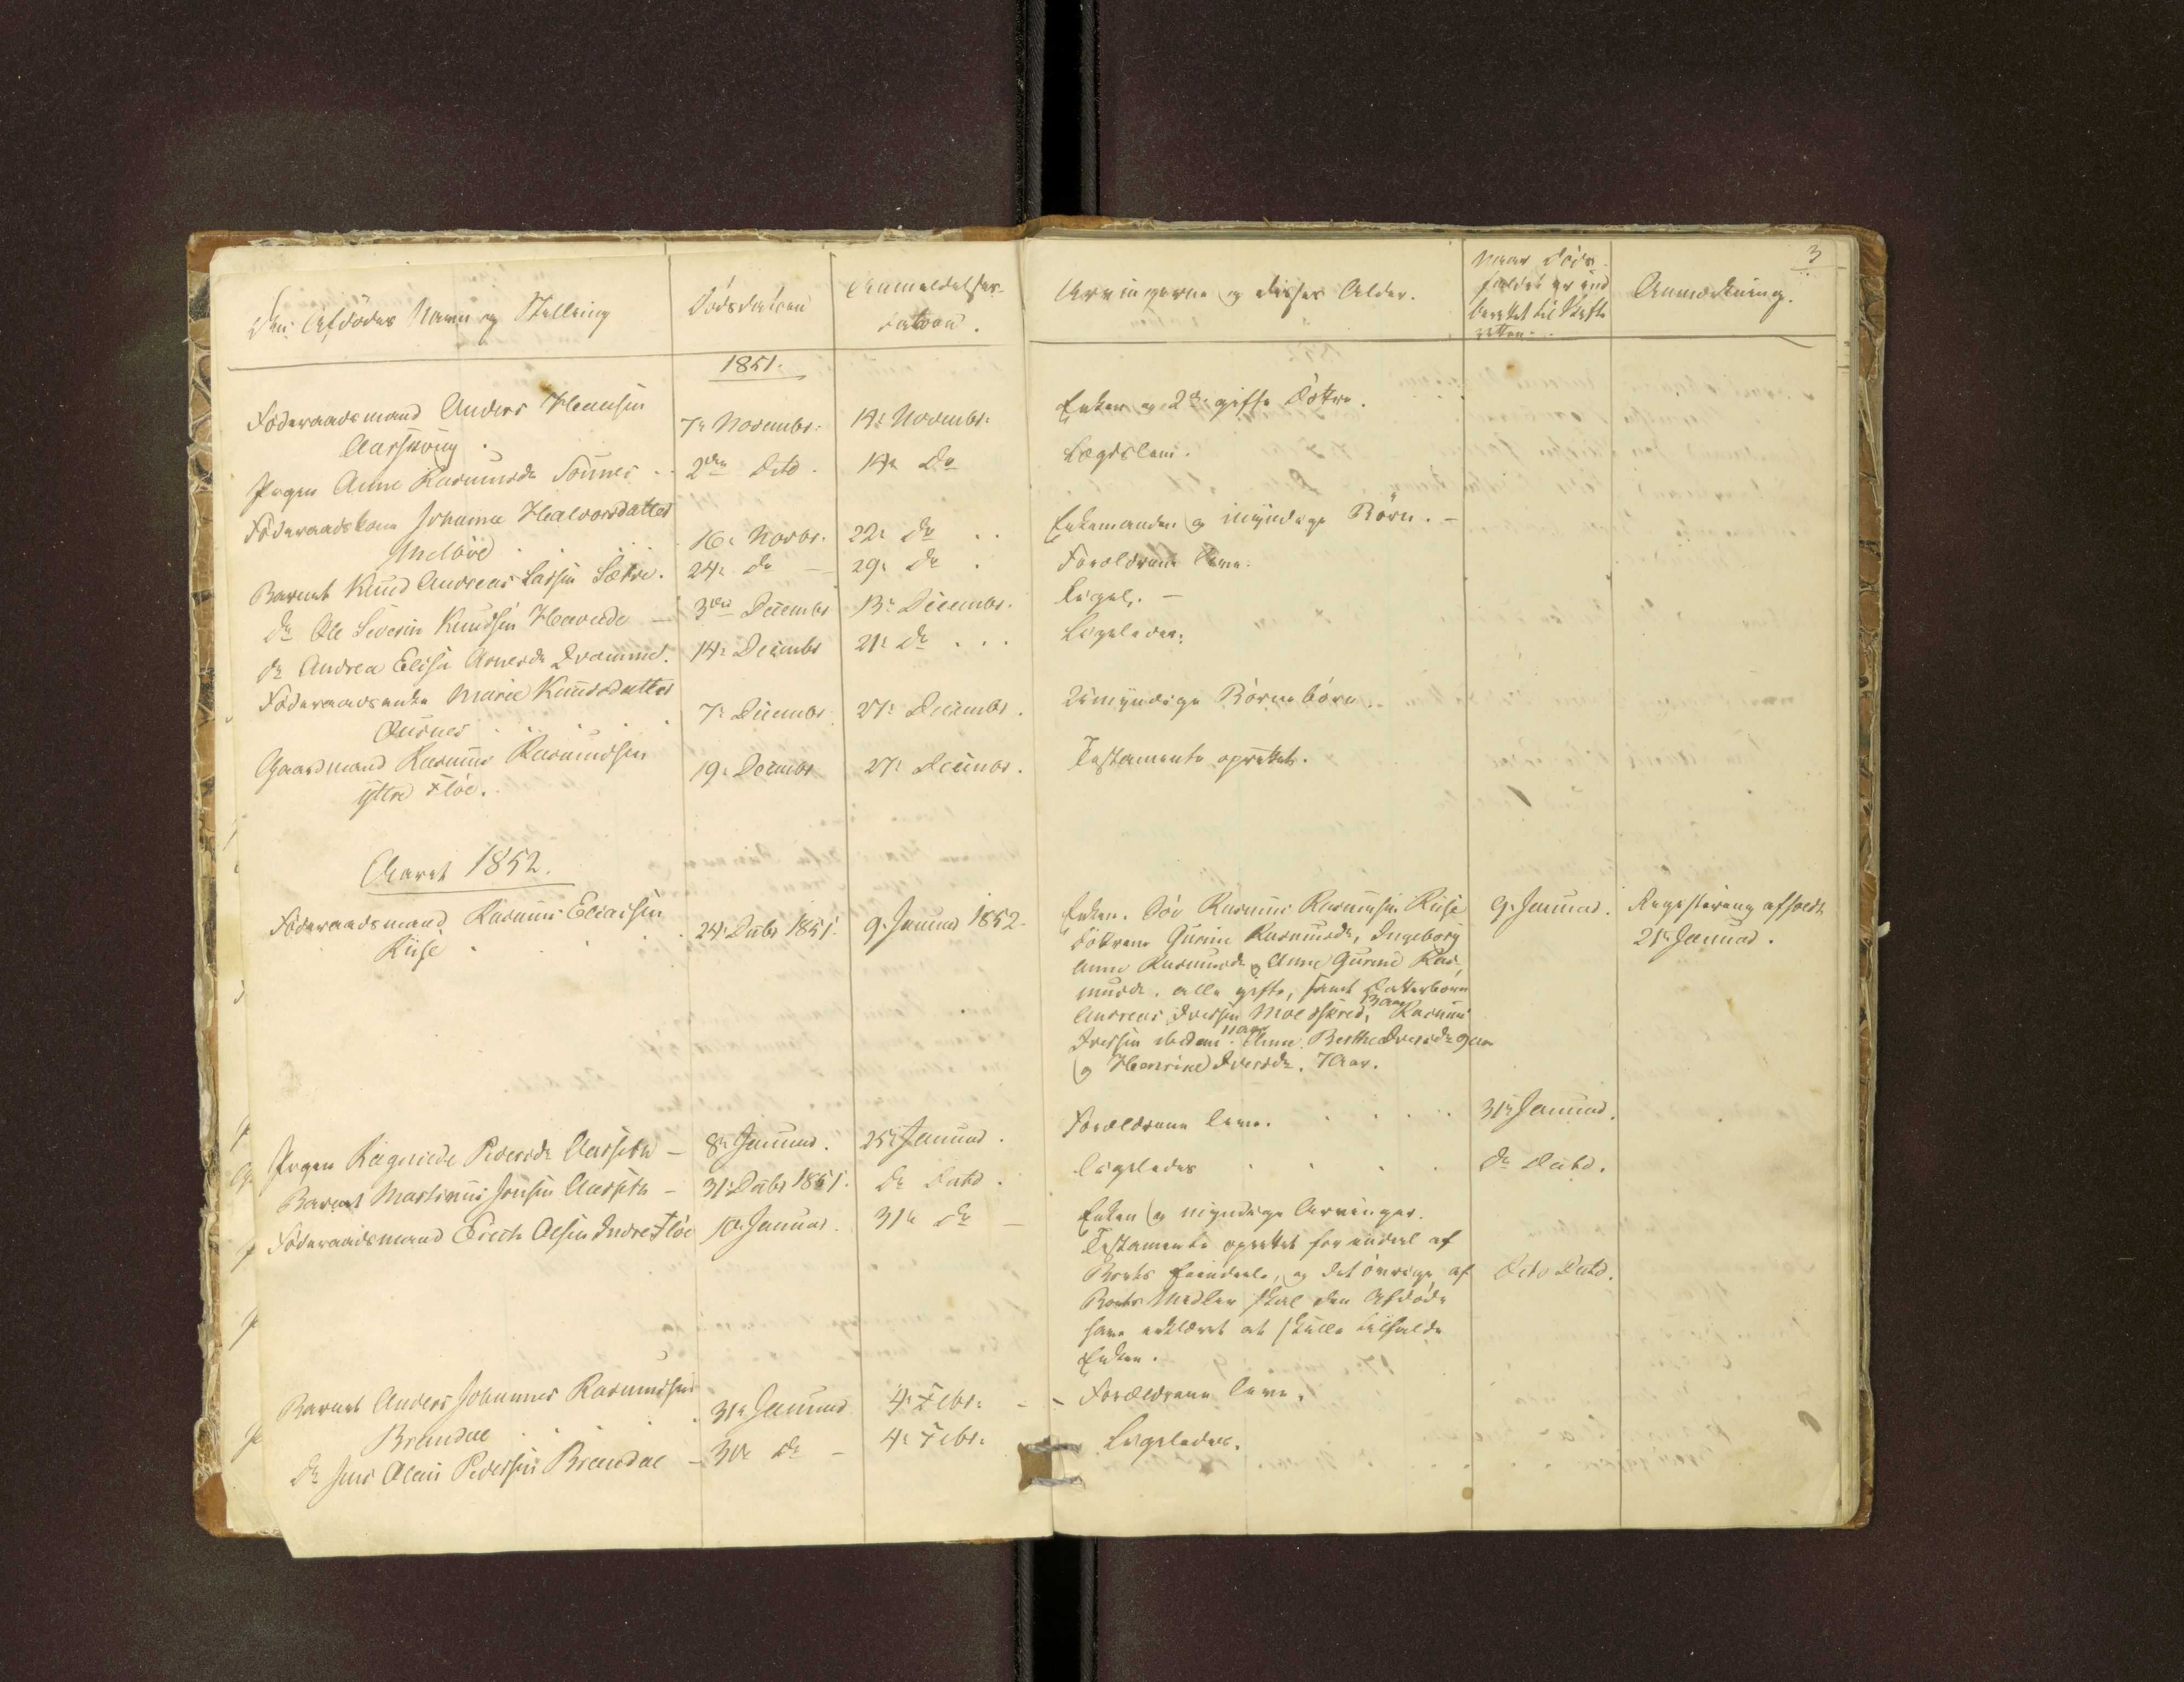 Den Afdødes Navn og Stilling
Dødsdatoen
Anmeldelses-
datoen.
Arvingerne og disses Alder.
Naar Døds-
faldet er ind
berettet til Skifte
retten.
Anmærkning.
3
1851.
Føderaadsmand Anders Hansen
Aarskoug
7de Novembr.
14de Novembr.
Enken og 2de gifte Døtre.
Pigen Anne Rasmusdr
2den Dito.
14de Do
Lægdslem.
Føderaadskone Johanne Halvorsdatter
Myelbøe
16de Novbr.
22de Do
Enkemanden og myndige Børn. -
Barnet Knud Andreas Larsen Sætre.
24de do -
29de do.
Forældrene leve.
do Ole Severin Knudsen Havede -
3die Decembr
13de Decembr.
Ligel. -
do Andrea Elise Arnesdr
14de Decembr
21de do
Ligeledes.
Føderaadsenke Marie Knudsdatter
7de Decembr
27de Decembr.
Umyndige Børnebørn.
Gaardmand Rasmus Rasmussen
yttre Fløe.
19de Decembr
27de Decembr.
Testamente oprettet.
Aaret 1852.
Føderaadsmand Rasmus Eliassen
Riise
24de Decbr 1851.
9de Januar 1852.
Enken. Søn Rasmus Rasmussen Riise
Døttrene Gurine Rasmusdr, Ingeborg
Anne Rasmusdr og Anne Gurine Ras-
musdr. alle gifte, samt Datterbørn
Andreas Iversen Moldskred, 13 Aar, Rasmus
Iversen ibidem 11 Aar. Anne Berthe Iversdr 9 Aar
og Henrine Iversdr. 7 Aar.
9de Januar.
Registrering afholdt
21de Januar.
Pigen Ragnilde Pedersdr Aarseth -
8de Januar.
25de Januar.
Forældrene leve.
31te Januar.
Barnet Martinus Jensen Aarseth -
31te Decbr 1851.
do Dato.
ligeledes
do Dato.
Føderaadsmand Erich Olsen Indre Fløe
10de Januar.
31te do -
Enken og myndige Arvinger.
Testamente oprettet for endeel af
Boets Eiendeele, og det øvrige af
Boets Midler skal den Afdøde
have erklæret at skulle tilfalde
Enken.
Dito Dato.
Barnet Anders Johannes Rasmussen
Brandal
31te Januar
4de Febr. -
- Forældrene leve.
do Jens Olaus Pedersen Brandal
- 30te do -
4de Febr.
Ligeledes.